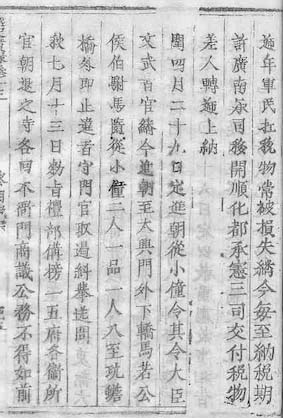 遞年軍民扛稅物常被損失續今每至納稅期
許廣南承司移開順化都承憲三司交付稅物
差人轉遞上納
閏四月二十九日定進朝從小僮令其令大臣
文武百官續今進朝至大興門外下轎馬若公
侯伯駙馬從小僮二人一品一人八至玳
橋即止違者守門官取過糾拳遞問
秋七月十三日勅部備榜一五府各衞所
官朝退之時各回本衙門商議公務不得如前